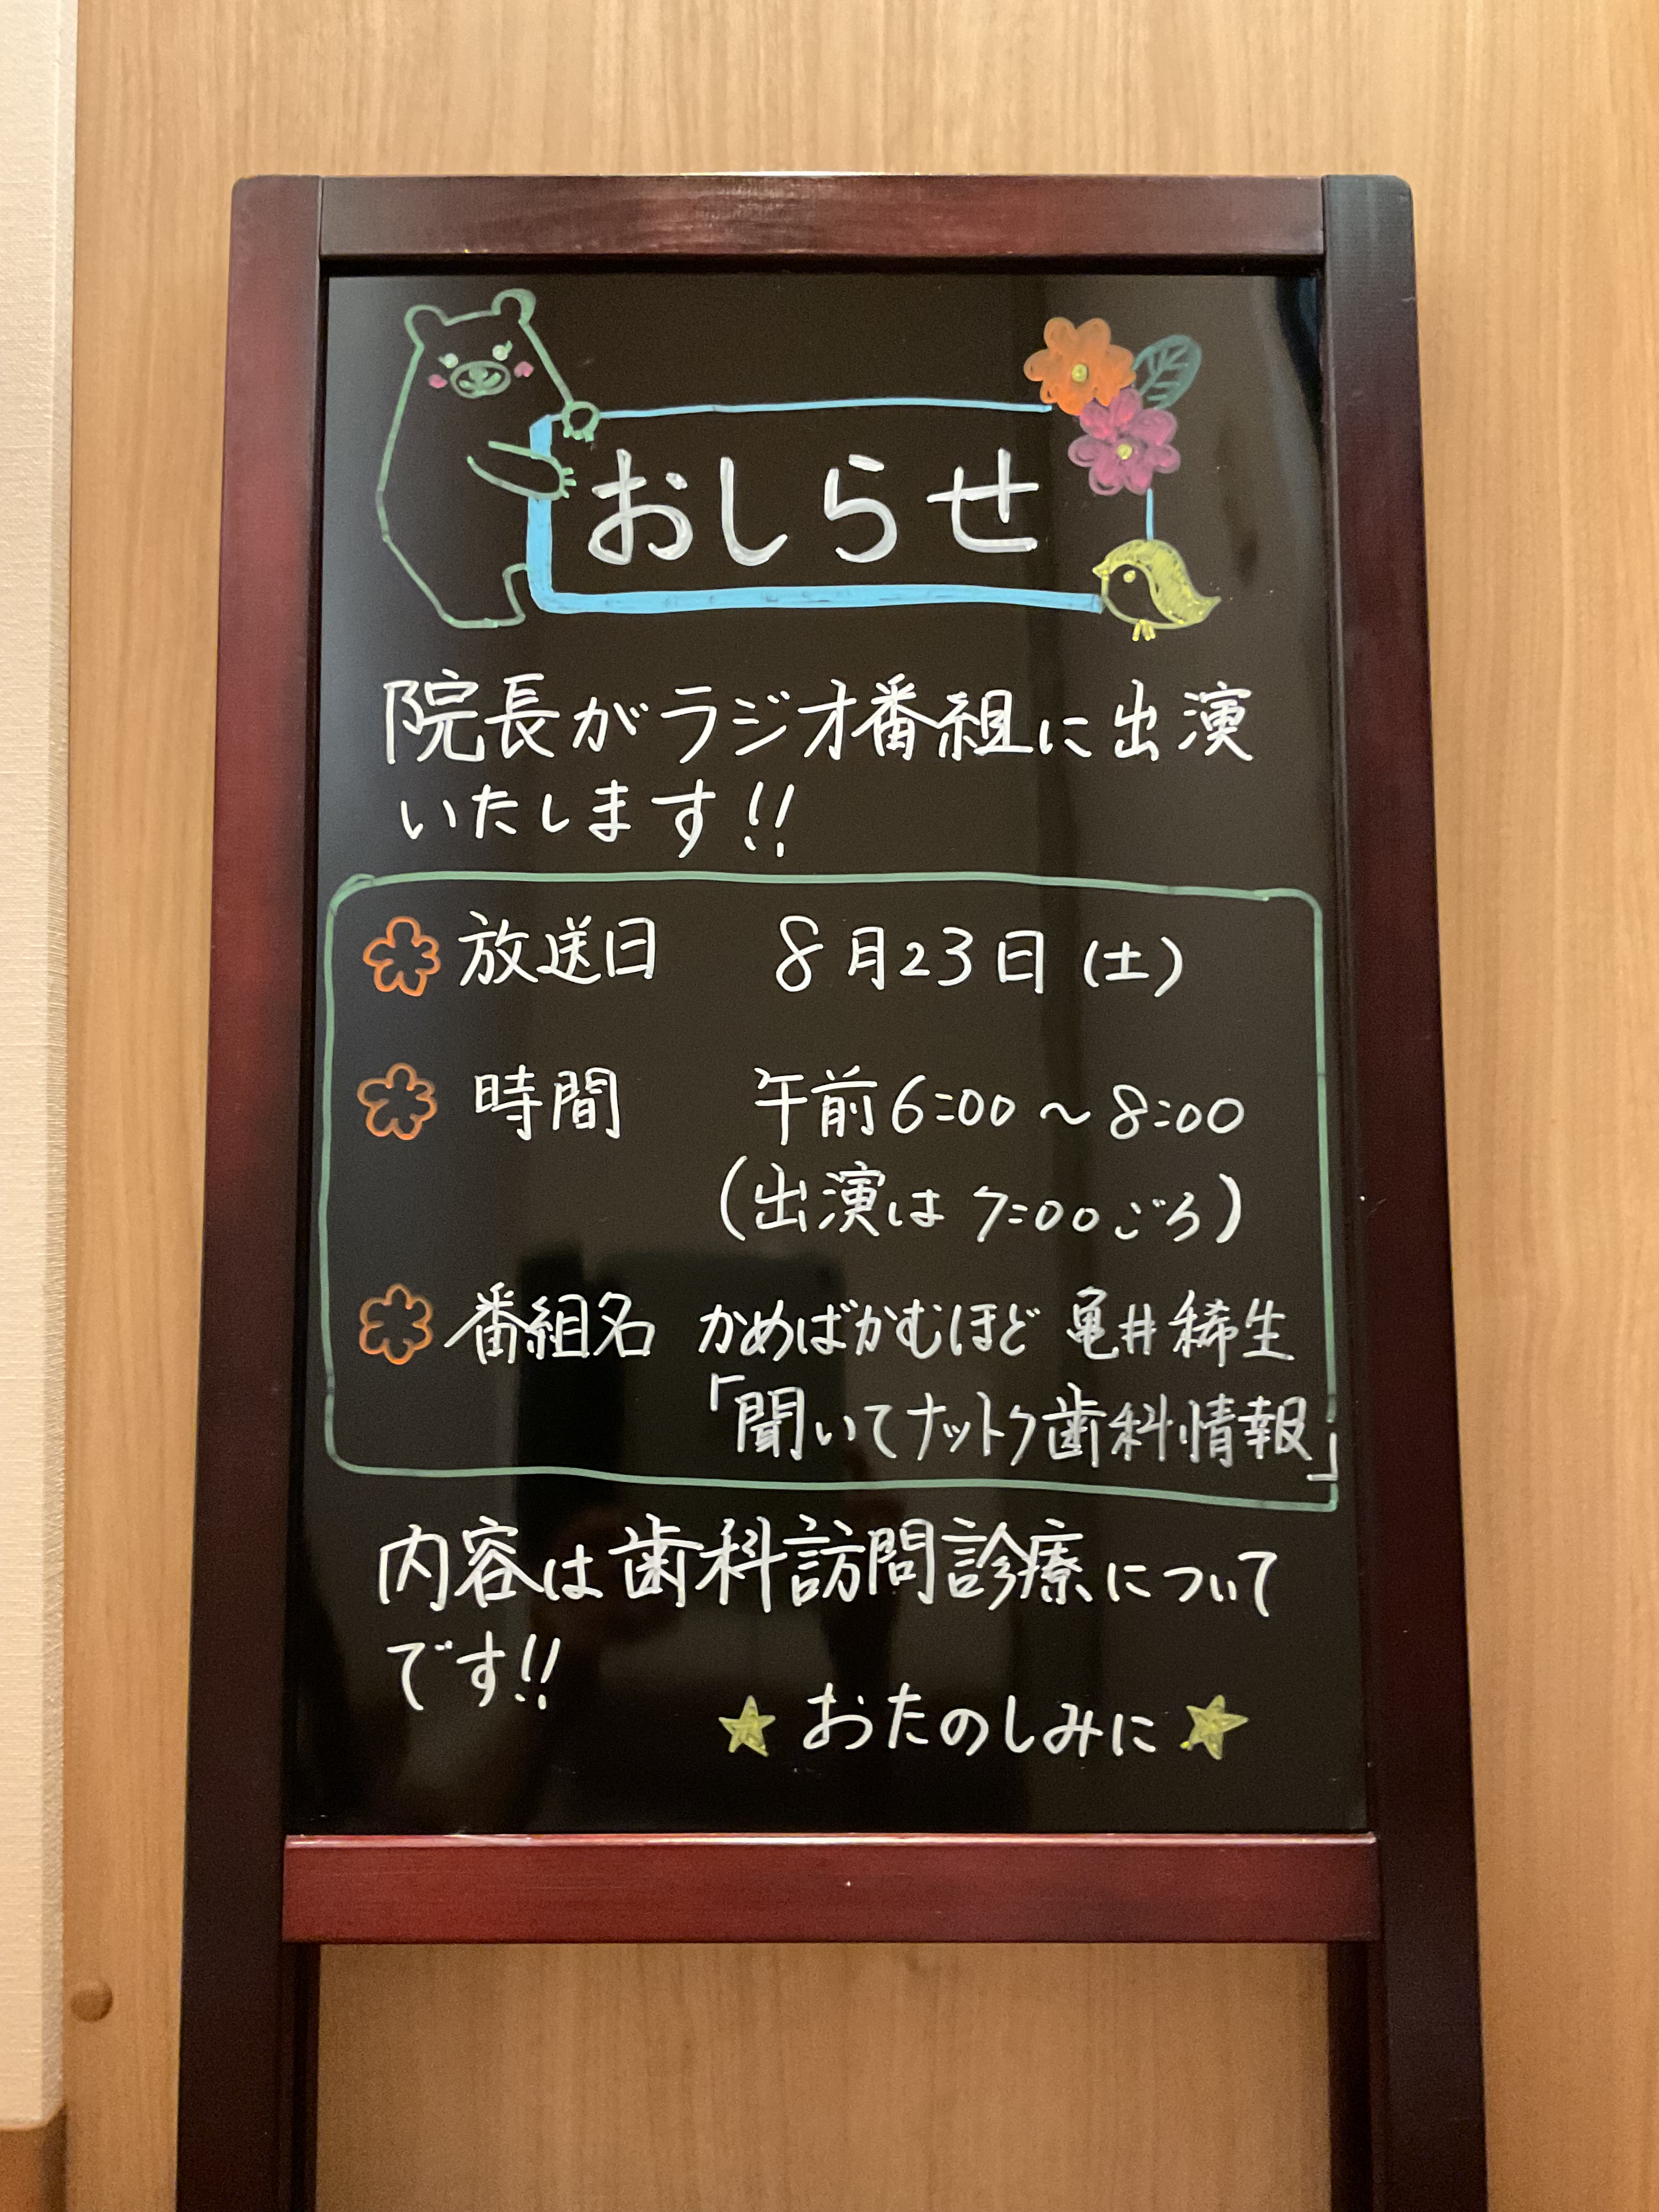 おしらせ
院長がラジオ番組に出演
いたします!!
放送日 8月23日(土)
時間 午前6:00~8:00
(出演は7:00ごろ)
番組名 かめばかむほど 亀井稀生
「聞いてナットク歯科情報」
内容は歯科訪問診療について
です!!
★おたのしみに★